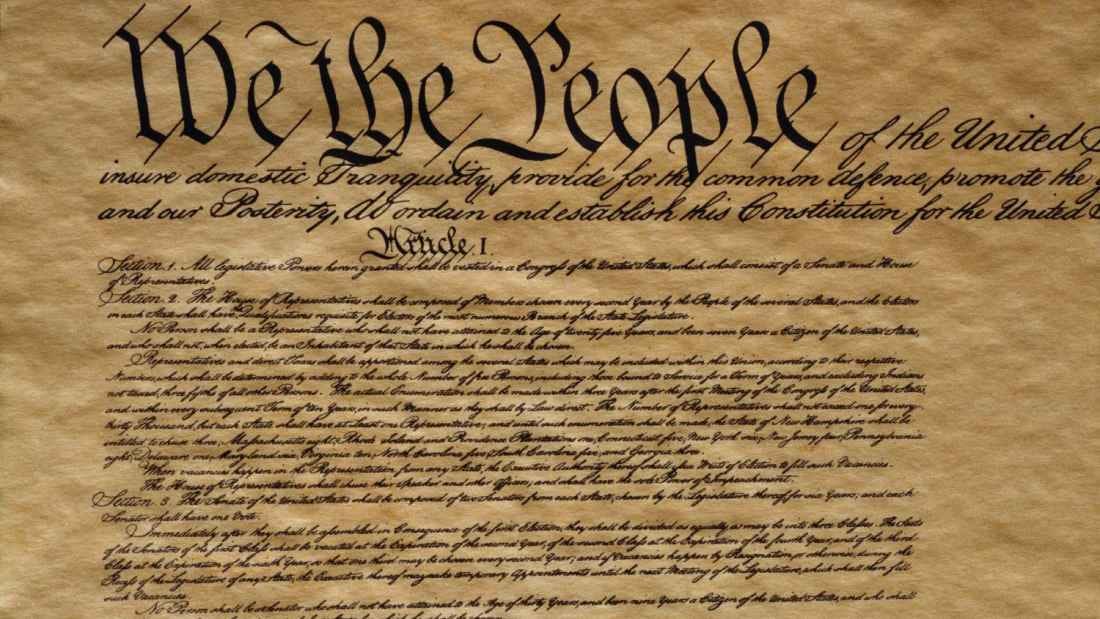 We the People of the United
insure domestic Tranquility, provide for the common defence, promote the
and our Posterity, do ordain and establish this Constitution for the United
Article. I.
Section. 1. All legislative Powers herein granted shall be vested in a Congreſs of the United States, which shall consist of a Senate and House
of Representatives.
Section. 2. The House of Representatives shall be composed of Members chosen every second Year by the People of the several States, and the Electors
in each State shall have Qualifications requisite for Electors of the most numerous Branch of the State Legislature.
No Person shall be a Representative who shall not have attained to the Age of twenty five Years, and been seven Years a Citizen of the United States,
and who shall not, when elected, be an Inhabitant of that State in which he shall be chosen.
Representatives and direct Taxes shall be apportioned among the several States which may be included within this Union, according to their respective
Numbers, which shall be determined by adding to the whole Number of free Persons, including those bound to Service for a Term of Years, and excluding Indians
not taxed, three fifths of all other Persons. The actual Enumeration shall be made within three Years after the first Meeting of the Congreſs of the United States,
and within every subsequent Term of ten Years, in such Manner as they shall by Law direct. The Number of Representatives shall not exceed one for every
thirty Thousand, but each State shall have at Least one Representative; and until such enumeration shall be made, the State of New Hampshire shall be
entitled to chuse three, Maſsachusetts eight, Rhode Island and Providence Plantations one, Connecticut five, New York six, New Jersey four, Pennsylvania
eight, Delaware one, Maryland six, Virginia ten, North Carolina five, South Carolina five, and Georgia three.
When vacancies happen in the Representation from any State, the Executive Authority thereof shall iſsue Writs of Election to fill such Vacancies.
The House of Representatives shall chuse their Speaker and other Officers; and shall have the sole Power of Impeachment.
Section. 3. The Senate of the United States shall be composed of two Senators from each State, chosen by the Legislature thereof, for six Years; and each
Senator shall have one Vote.
Immediately after they shall be aſsembled in Consequence of the first Election, they shall be divided as equally as may be into three Claſses. The Seats
of the Senators of the first Claſs shall be vacated at the Expiration of the second Year, of the second Claſs at the Expiration of the fourth Year, and of the third
Claſs at the Expiration of the sixth Year, so that one third may be chosen every second Year; and if Vacancies happen by Resignation, or otherwise, during the
Receſs of the Legislature of any State, the Executive thereof may make temporary Appointments until the next Meeting of the Legislature, which shall then fill
such Vacancies.
No Person shall be a Senator who shall not have attained to the Age of thirty Years, and been nine Years a Citizen of the United States, and who shall